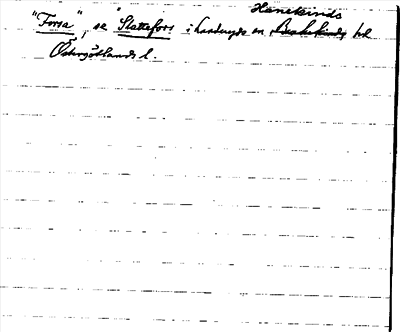 Hanekinds
"Forsa", se "Slattefors i Landeryds sn, Bankekinds hd
Östergötlands l.